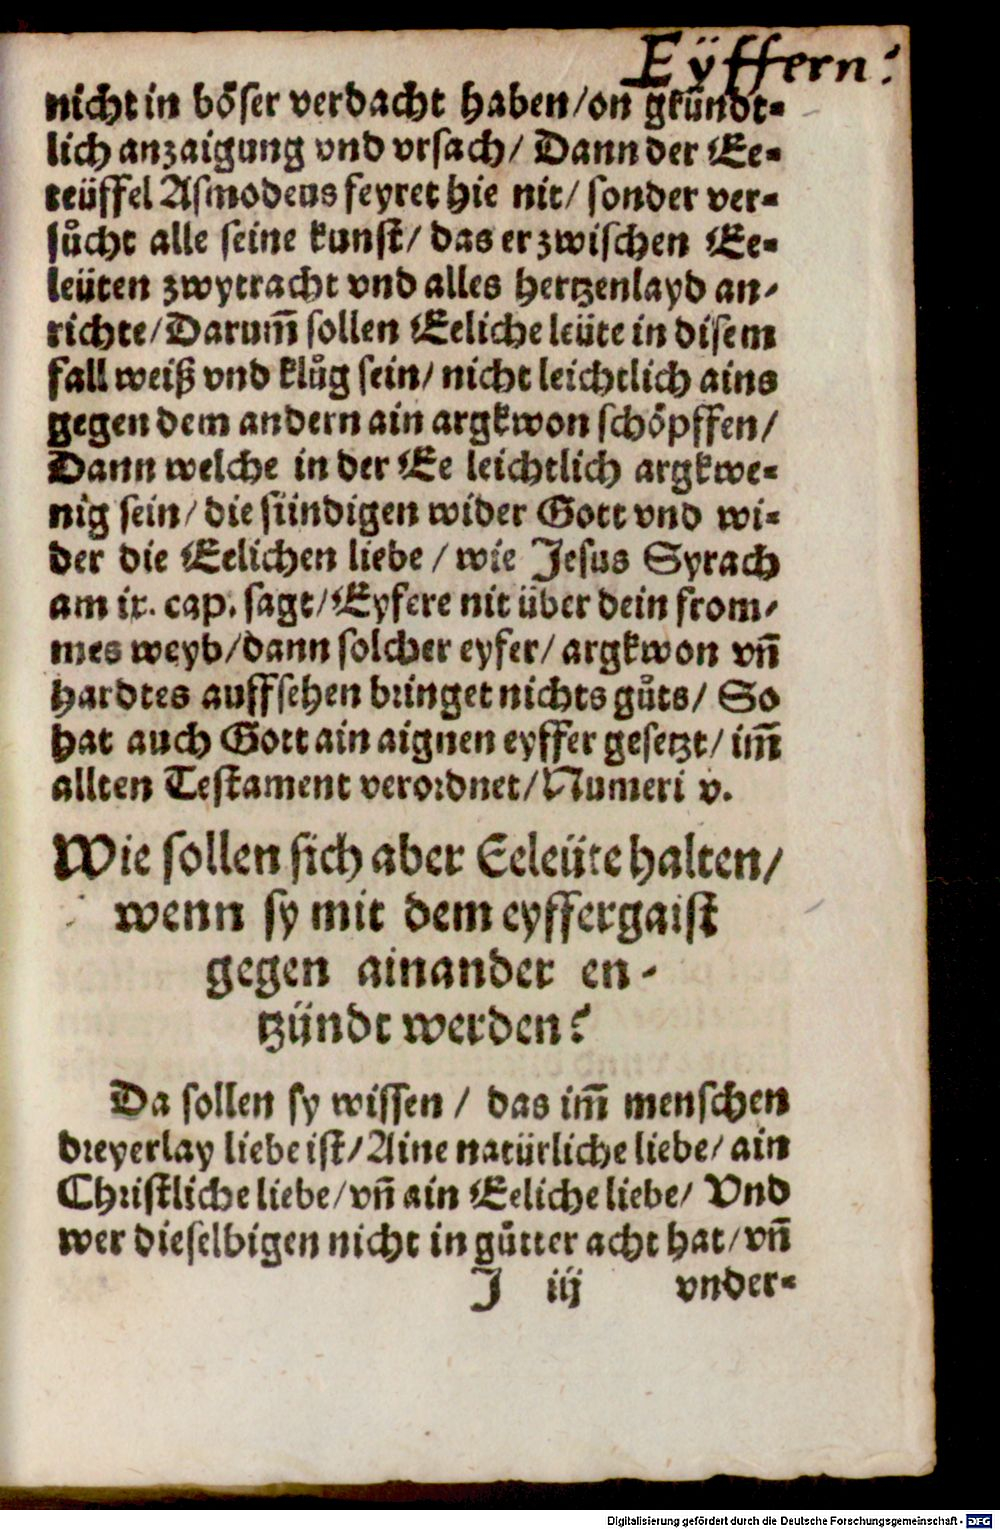 Eÿffern:
nicht in böser verdacht haben/on gkündt-
lich anzaigung vnd vrsach/ Dann der Ee-
teüffel Asmodeus feyret hie nit/ sonder ver-
sůcht alle seine kunst/ das er zwischen Ee-
leüten zwytracht vnd alles hertzenlayd an-
richte/Darum̃ sollen Eeliche leüte in disem
fall weiß vnd klůg sein/ nicht leichtlich ains
gegen dem andern ain argkwon schöpffen/
Dann welche in der Ee leichtlich argkwe-
nig sein/ die sündigen wider Gott vnd wi-
der die Eelichen liebe / wie Jesus Syrach
am ix. cap. sagt/Eyfere nit über dein from-
mes weyb/dann solcher eyfer/ argkwon vñ
hardtes auffsehen bringet nichts gůts/ So
hat auch Gott ain aignen eyffer gesetzt/ im̃
allten Testament verordnet/Numeri v.
Wie sollen sich aber Eeleüte halten/
wenn sy mit dem eyffergaist
gegen ainander en-
tzündt werden?
Da sollen sy wissen / das im̃ menschen
dreyerlay liebe ist/Aine natürliche liebe/ ain
Christliche liebe/vñ ain Eeliche liebe/ Vnd
wer dieselbigen nicht in gůtter acht hat/vñ
J iij vnder-
Digitalisierung gefördert durch die Deutsche Forschungsgemeinschaft - DFG